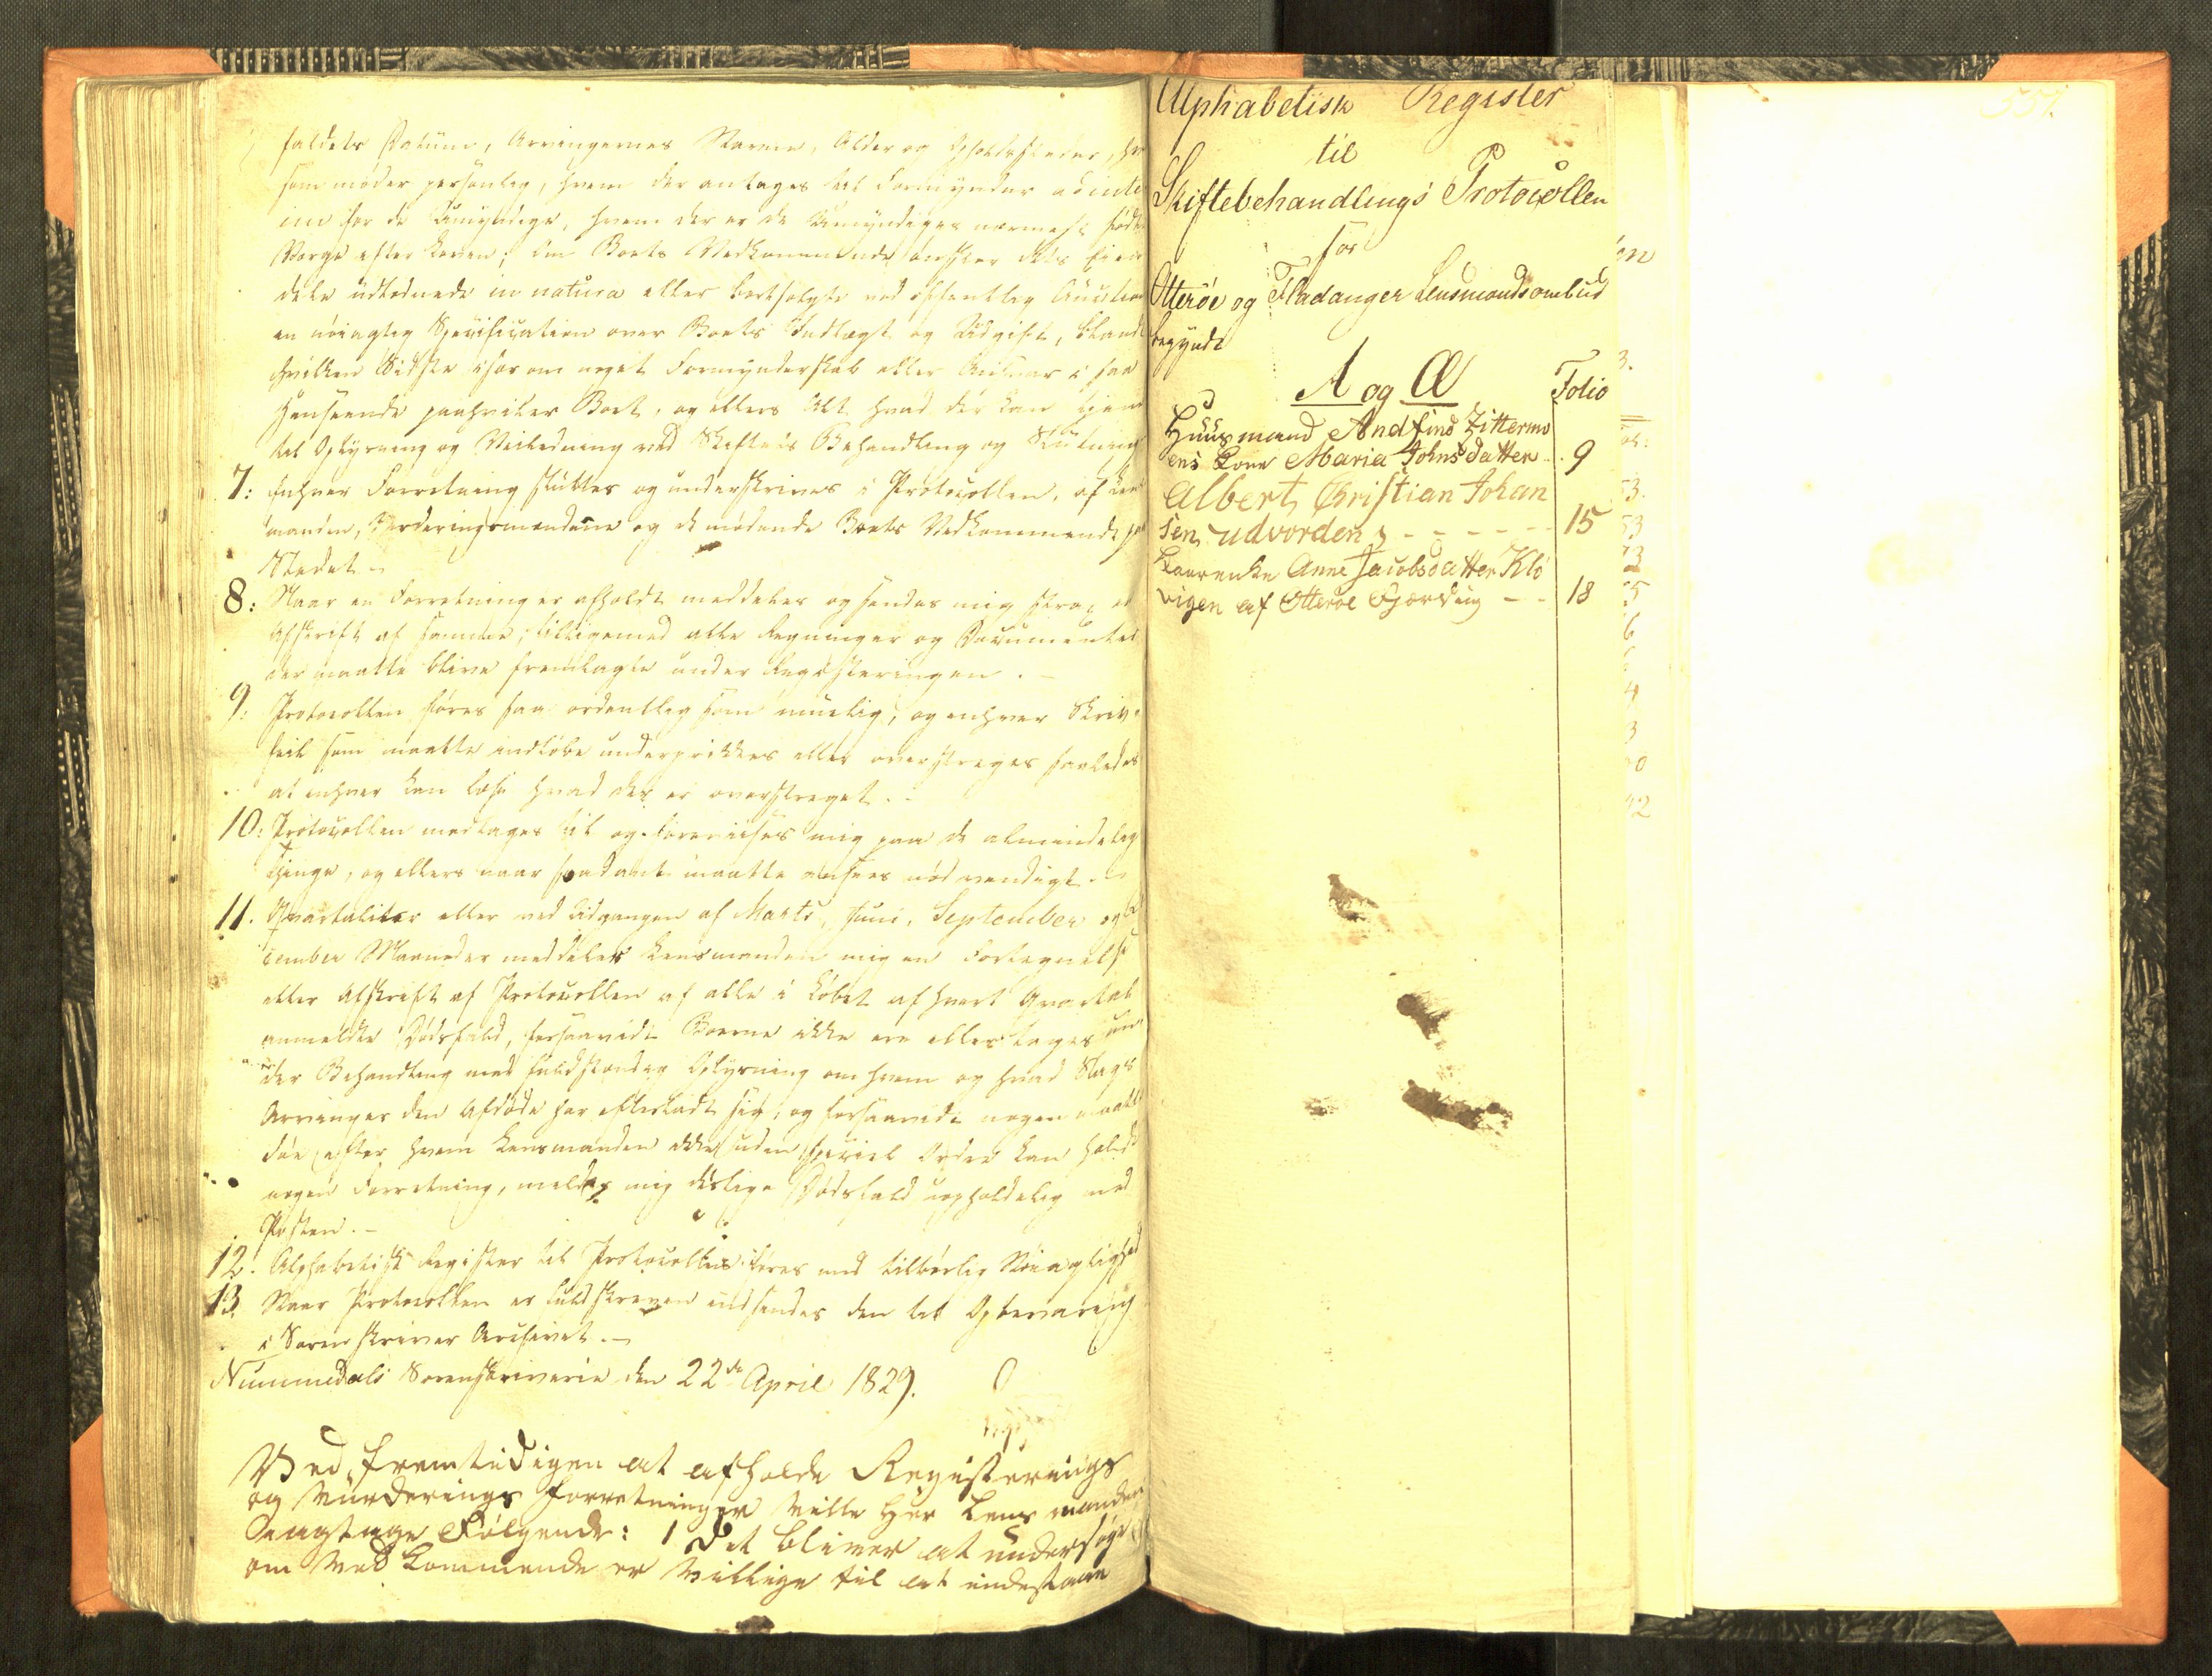 faldets Datum, Arvingernes Navne, Alder og Opholdssteder, hv
som møder personlig, hvem der antages til Formynder ad inte
im for de Umyndige, hvem der er de Umyndiges nærmeste fødte
Værge efter Loven; om Boets Vedkommende ønsker dets Eien
dele udlodnede in natura eller bortsolgte ved offentlig Auction
en nöiagtig Specification over Boets Indtægt og Udgift, blandt
hvilken Sidste især om noget Formynderskab eller Ansvar i saa
Henseende paahviler Boet, og ellers Alt hvad der kan tjene
til Oplysning og Veiledning ved Skiftets Behandling og Slutning
7: Enhver Forretning sluttes og underskrives i Protocollen, af Lens
manden, Vurderingsmændene og de mødende Boets Vedkommende paa
Stedet.
8: Naar en Forretning er afholdt meddeles og sendes mig strax en
Afskrift af samme, tilligemed alle Regninger og Documenter
der maatte blive fremlagte under Registeringen.
9: Protocollen føres saa ordentlig som muelig, og enhver Skriv-
feil som maatte indløbe underprikkes eller overstreges saaledes
at enhver kan læse hvad der er overstreget.
10: Protocollen medtages til og foreviises mig paa de almindelig
Thinge, og ellers naar saadant maatte ansees nødvendigt.
11. Qvartaliter eller ved Udgangen af Marts, Juni, September og De
cember Maaneder meddeler Lensmanden mig en Fortegnelse
eller Afskrift af Protocollen af alle i Løbet af hvert Qvartal
anmeldte Dødsfald, forsaavidt Boerne ikke ere eller tages un
der Behandling med fuldstændig Oplysning om hvem og hvad Slags
Arvinger den Afdøde har efterladt sig, og forsaavidt nogen maatte
døe efter hvem Lensmanden ikke uden speciel Ordre kan holde
nogen Forretning, meldes mig deslige Dødsfald uopholdelig med
Posten.-
12. Alphabetisk Register til Protocollen føres med tilbørlig Nöiagtighed
13. Naar Protocollen er fuldskreven indsendes den til Opbevaring
i Sorenskriver Archivet.-
Nummedals Sorenskriverie den 22de April 1829.
Ved fremtidigen at afholde Registerings
og Vurderings Forretninger ville Her Lensmanden
iagttage Følgende: 1 Det bliver at undersøge
om Vedkommende er villige til at indestaae
Alphabetisk Register
til
Skiftebehandlings Protocollen
for
Otterøe og Fladanger Lensmandsombud
begyndt
A og Æ Folio
Huusmand Andfind Zittermo
ens Kone Maria Johnsdatter 9
Albert Christian Johan
sen udvorden 15
Kaarenke Anne Jacobsdatter Klö
vigen af Otteröe Fjerding 18
557.